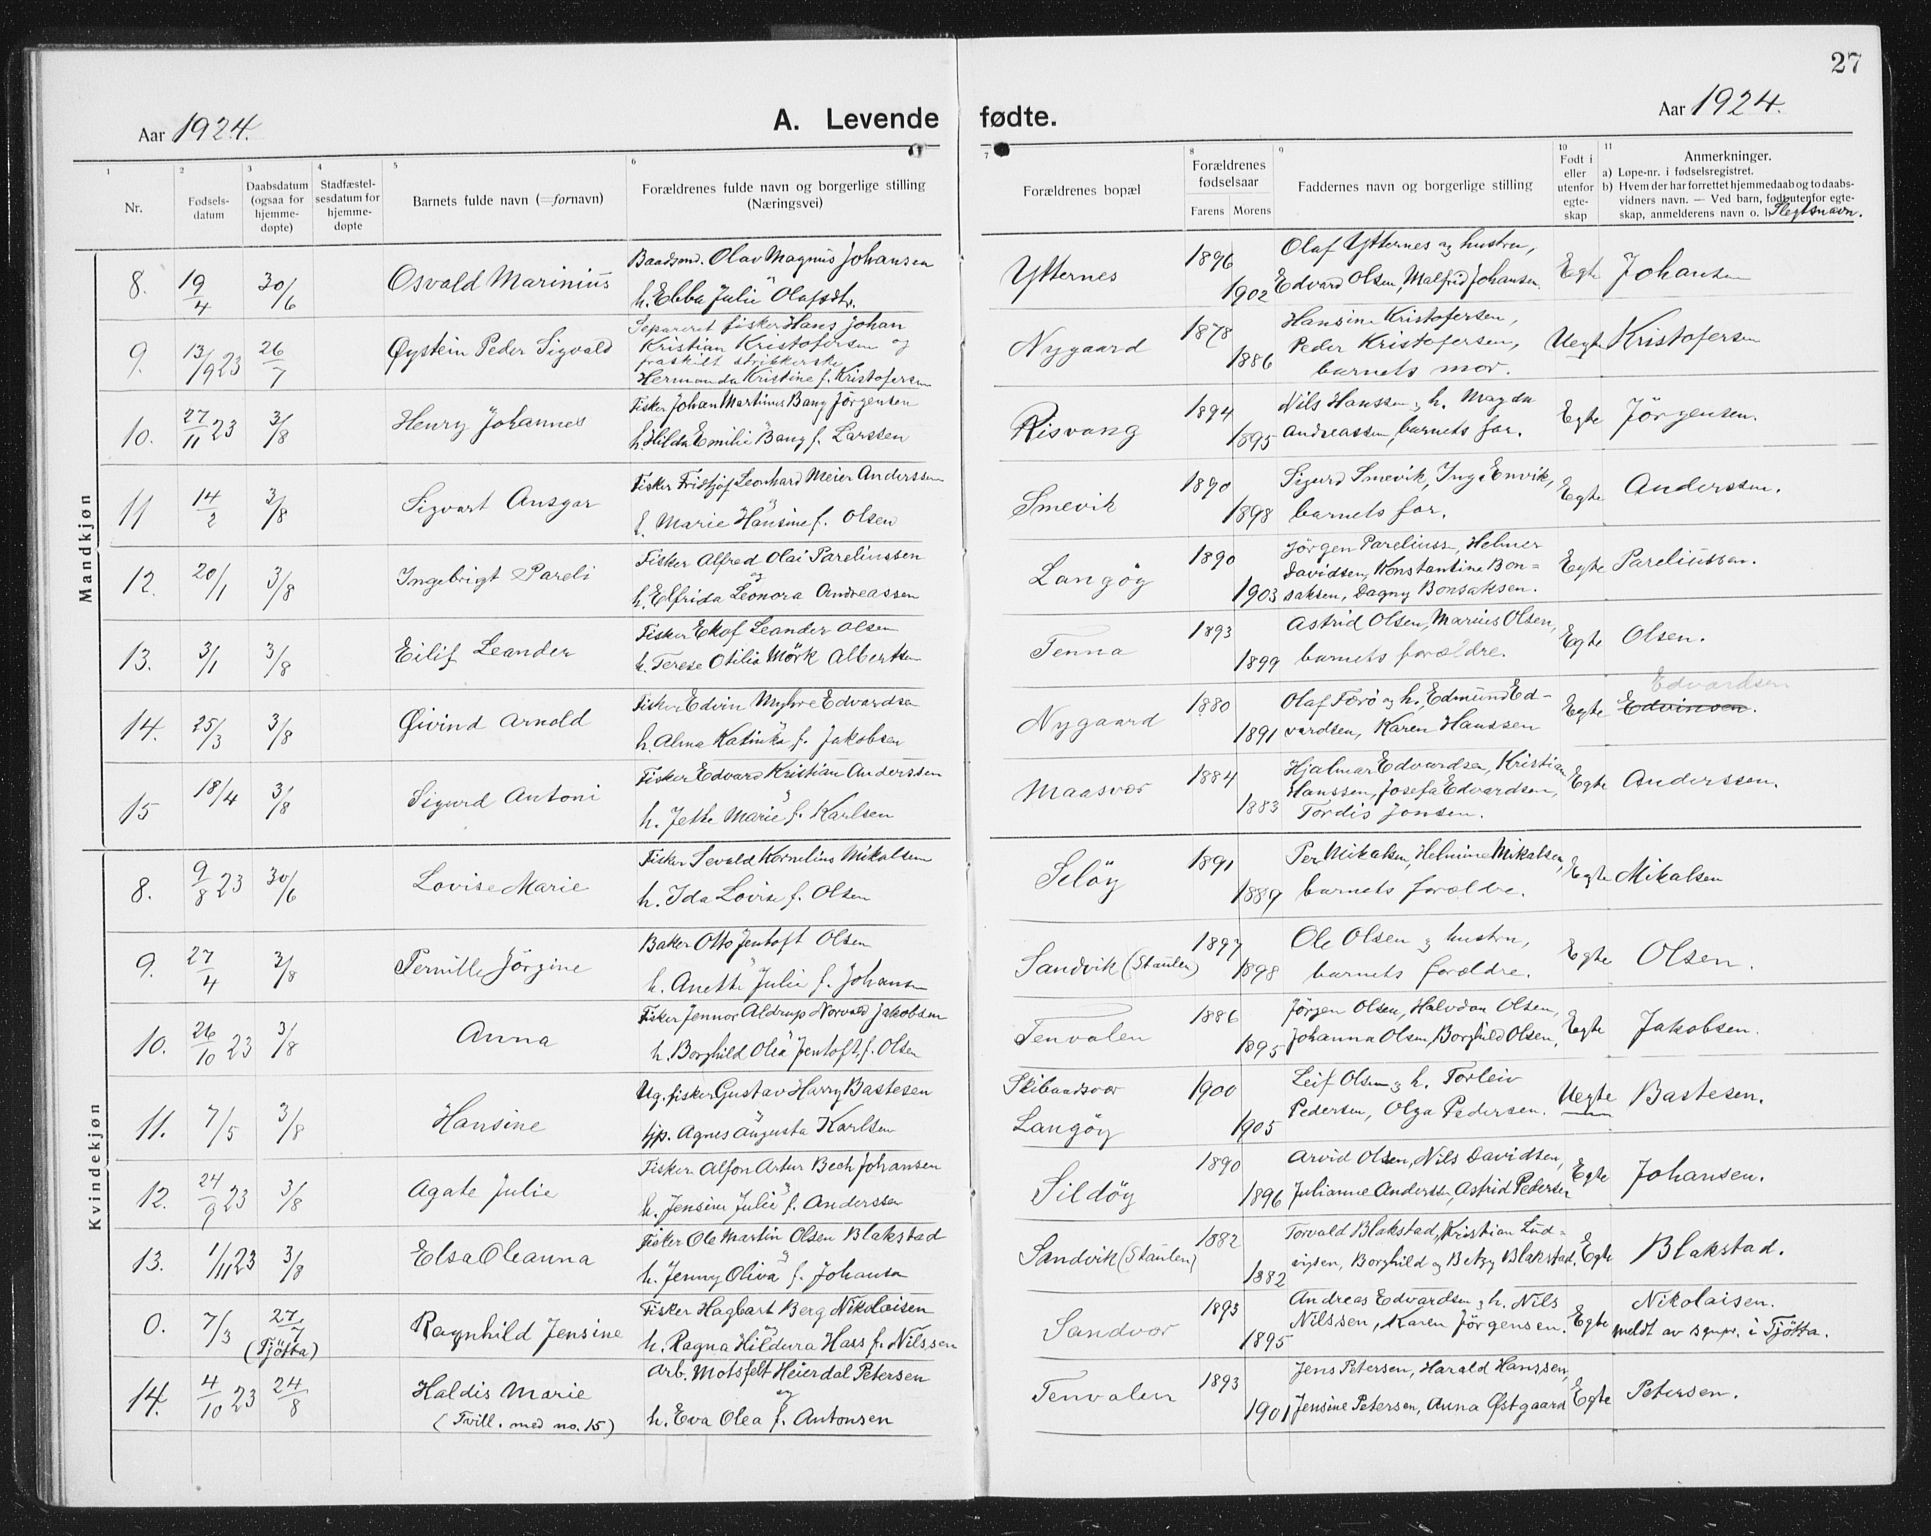 27
Aar 1924.
A. Levende fødte.
Aar 1924.
1 2 3 4 5 6 7 8 9 10 11
Nr.
Fødsels-
datum
Daabsdatum
(ogsaa for
hjemme-
døpte)
Stadfæstel-
sesdatum for
hjemme-
døpte
Barnets fulde navn (=fornavn)
Forældrenes fulde navn og borgerlige stilling
(Næringsvei)
Forældrenes bopæl
Forældrenes
fødselsaar
Farens Morens
Faddernes navn og borgerlige stilling
Født i
eller
utenfor
egte-
skap
Anmerkninger.
a) Løpe-nr. i fødselsregistret.
b) Hvem der har forrettet hjemmedaab og to daabs-
vidners navn. — Ved barn, født utenfor egte-
skap, anmelderens navn o. l. Slegtsnavn.
Mandkjøn
8. 19/4 30/6 Osvald Marinius Baadsmd. Olav Magnus Johansen
h. Ebba Julie Olafsdtr.
Ytternes 1896 1902 Olaf Ytternes og hustru,
Edvard Olsen, Malfrid Johansen. Egte Johansen
9. 13/9 23 26/7 Øystein Peder Sigvald Separeret fisker Hans Johan
Kristian Kristofersen og
fraskilt strikkerske
Hermanda Kristine f. Kristofersen
Nygaard 1878 1886 Hansine Kristofersen,
Peder Kristofersen,
barnets mor. Uegte Kristofersen
10. 27/11 23 3/8 Henry Johannes Fisker Johan Martinus Bang Jörgensen
h. Hilda Emilie Bang f. Larssen
Risvang 1894 1895 Nils Hanssen og h. Magda
Andreassen, barnets far. Egte Jörgensen.
11 14/2 3/8 Sigvart Ansgar Fisker Fridtjof Leonhard Meier Anderssen
h. Marie Hansine f. Olsen
Smevik 1890 1898 Sigurd Smevik, Inga Envik,
barnets far. Egte Anderssen.
12. 20/1 3/8 Ingebrigt Pareli Fisker Alfred Olai Pareliussen
og
h. Elfrida Leonora Andreassen
Langöy 1890 1903 Jörgen Pareliuss, Helmer
Davidsen, Konstantine Bon=
saksen, Dagny Bonsaksen. Egte Pareliussen.
13. 3/1 3/8 Eilif Leander Fisker Ekof Leander Olsen
h. Terese Otilia Mörk Albertsen
Tenna 1893 1899 Astrid Olsen, Marius Olsen,
barnets forældre. Egte Olsen.
14. 25/3 3/8 Øivind Arnold Fisker Edvin Myhre Edvardsen
h. Alma Katinka f. Jakobsen
Nygaard 1880 1891 Olaf Færö og h., Edmund Ed-
vardsen, Karen Hanssen Egte Edvardsen
Edvinsen.
15 18/4 3/8 Sigurd Antoni Fisker Edvard Kristian Anderssen
h. Jette Marie f. Karlsen
Maasvær 1884 1883 Hjalmar Edvardsen, Kristian
Hanssen, Josefa Edvardsen,
Tordis Jonsen. Egte Anderssen.
Kvindekjøn
8. 9/8 23 30/6 Lovise Marie Fisker Sevald Kornelius Mikalsen
h. Ida Lovise f. Olsen
Selöy 1891 1889 Per Mikalsen, Helmine Mikalsen,
barnets forældre. Egte Mikalsen
9. 27/4 3/8 Pernille Jörgine Baker Otto Jentoft Olsen
h. Anette Julie f. Johansen
Sandvik (Staulen) 1897 1898 Ole Olsen og hustru,
barnets forældre. Egte Olsen.
10. 26/10 23 3/8 Anna Fisker Jennor Aldrup Norvald Jakobsen
h. Borghild Olea Jentoft, f. Olsen
Tenvalen 1886 1895 Jörgen Olsen, Halvdan Olsen,
Johanna Olsen, Borghild Olsen, Egte Jakobsen.
11. 7/5 3/8 Hansine Ug. fisker Gustav Harry Bastesen
og
tjp. Agnes Augusta Karlsen
Skibaadsvær
Langöy 1900 1905 Leif Olsen og h. Torleiv
Pedersen, Olga Pedersen. Uegte Bastesen.
12. 24/9 23 3/8 Agate Julie Fisker Alfon Artur Bech Johansen
h. Jensine Julie f. Anderssen
Sildöy 1890 1896 Arvid Olsen, Nils Davidsen,
Julianne Anderssen, Astrid Pedersen Egte Johansen.
13. 1/11 23 3/8 Elsa Oleanna Fisker Ole Martin Olsen Blakstad
og
h. Jenny Oliva f. Johansen
Sandvik (Staulen) 1882 1882 Torvald Blakstad, Kristian Lud=
vigsen, Borghild og Betzy Blakstad. Egte Blakstad.
0. 7/3 27/7 (Tjötta) Ragnhild Jensine Fisker Hagbart Berg Nikolaisen
og
h. Ragna Hildura Hass f. Nilssen
Sandvær 1893 1895 Andreas Edvardsen og h. Nils
Nilssen, Karen Jörgensen. Egte Nikolaisen.
meldt av sgnpr. i Tjötta.
14. 4/10 23 24/8 Haldis Marie
(Tvill. med no. 15) Arb. Motsfelt Heierdal Petersen
og
h. Eva Olea f. Antonsen
Tenvalen 1893 1901 Jens Petersen, Harald Hanssen,
Jensine Petersen, Anna Østgaard Egte Petersen.